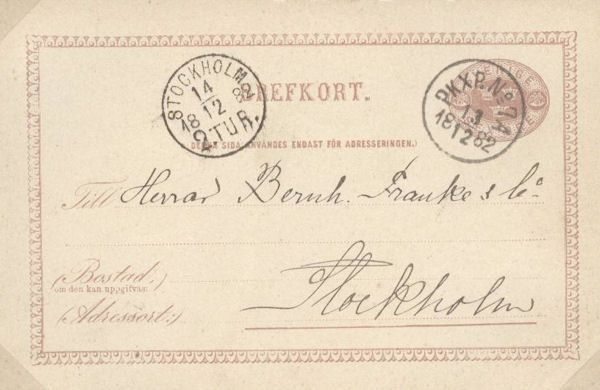 BREFKORT.
STOCKHOLM
14
18 12 82
2 TUR.
PKXP. No 7A
13
18 12 82
(DENNA SIDA ANVÄNDES ENDAST FÖR ADRESSERINGEN.)
Till Herrar Bernh. Franke & Co.
(Bostad:)
om den kan uppgifvas:
Stockholm
(Adressort:)